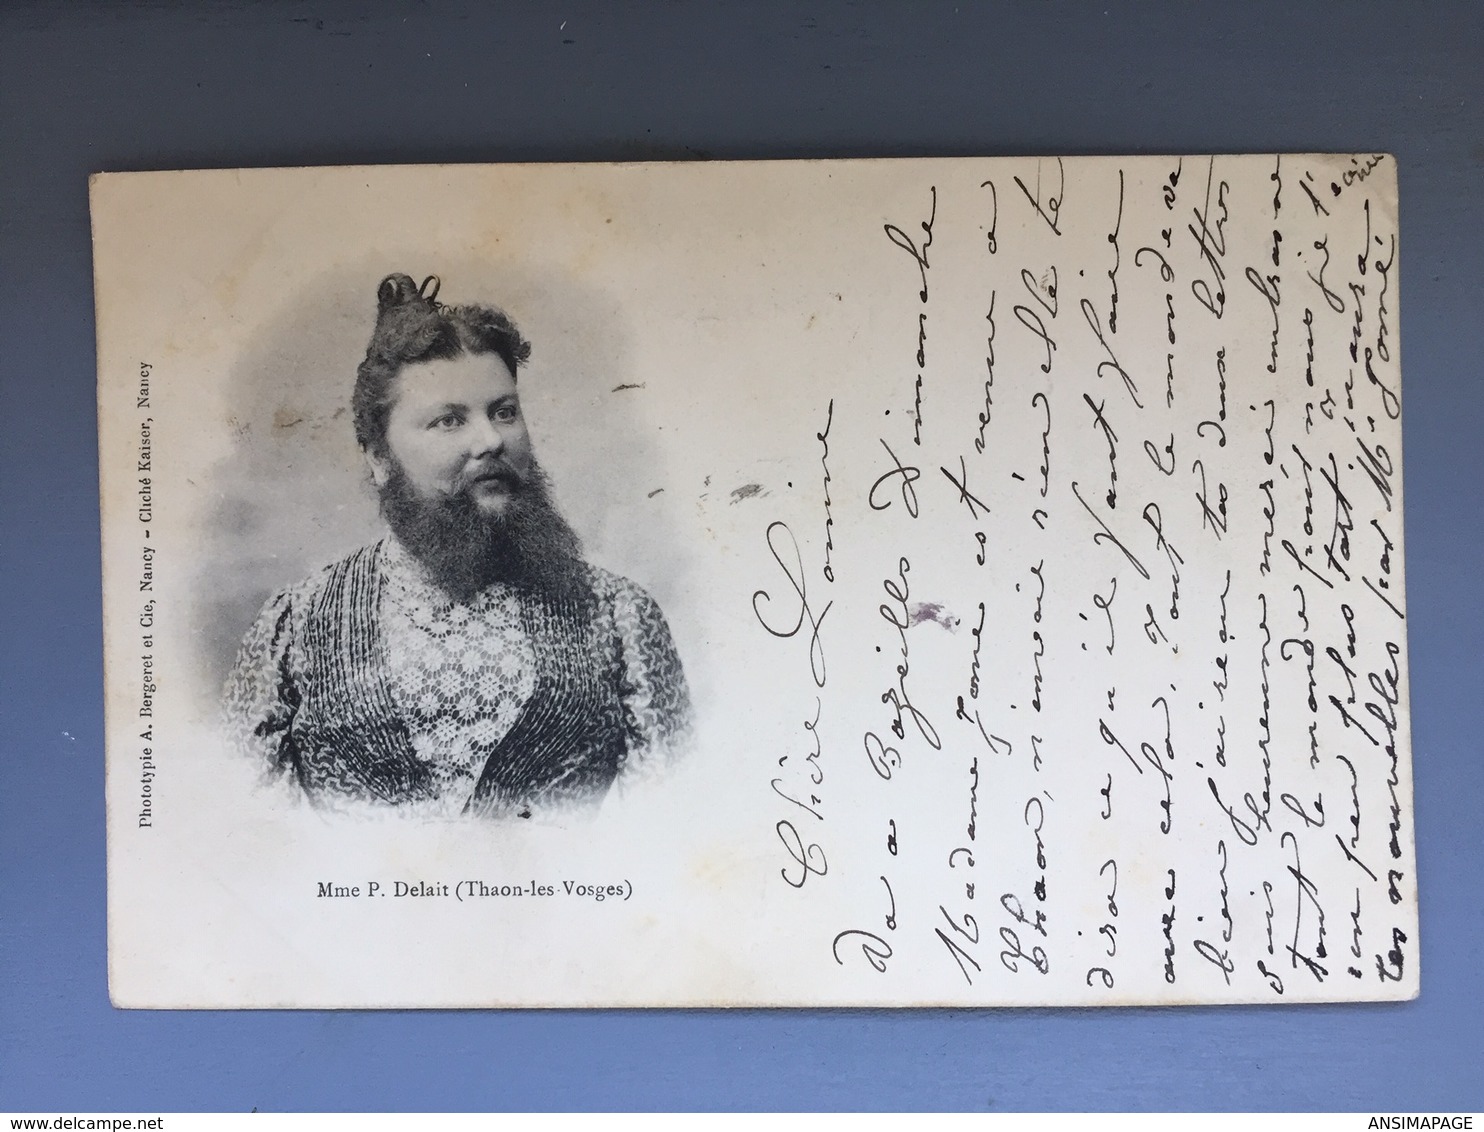 Phototypie A. Bergeret et Cie, Nancy - Cliché Kaiser, Nancy
Mme P. Delait (Thaon-les-Vosges)
Chère
Va a Dimanche
Madame est venue a
Thaon, n'envoie rien elle te
dira ce qu'il faut faire
avec cela. Tout le monde va
bien J'ai reçu tes deux lettres
suis heureuse merci embrasse
tout le monde pour nous je t'
un peu plus tard
tes nouvelles par
www.delcampe.net
ANSIMAPAGE